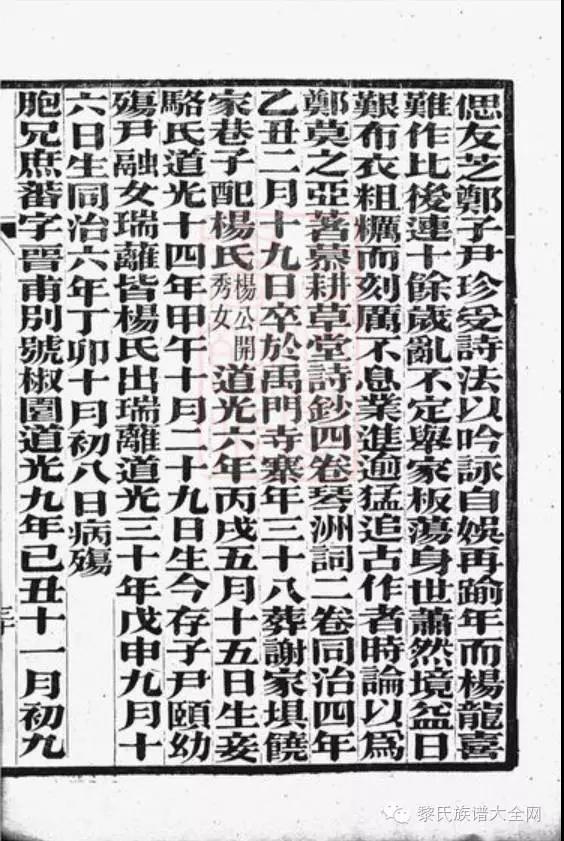 偲友芝鄭子尹珍受詩法以吟詠自娛再踰年而楊龍喜
難作比後連十餘歲亂不定舉家板蕩身世蕭然境益日
艱布衣粗糲而刻厲不息業進逾猛追古作者時論以爲
鄭莫之亞著慕耕草堂詩鈔四卷琴洲詞二卷同治四年
乙丑二月十九日卒於禹門寺寨年三十八葬謝家垻饒
家巷子配楊氏楊公開秀女道光六年丙戌五月十五日生妾
駱氏道光十四年甲午十月二十九日生今存子尹頤幼
殤尹融女瑞離皆楊氏出瑞離道光三十年戊申九月十
六日生同治六年丁卯十月初八日病殤
胞兄庶蕃字晉甫別號椒園道光九年己丑十一月初九
三十
黎氏族谱大全网